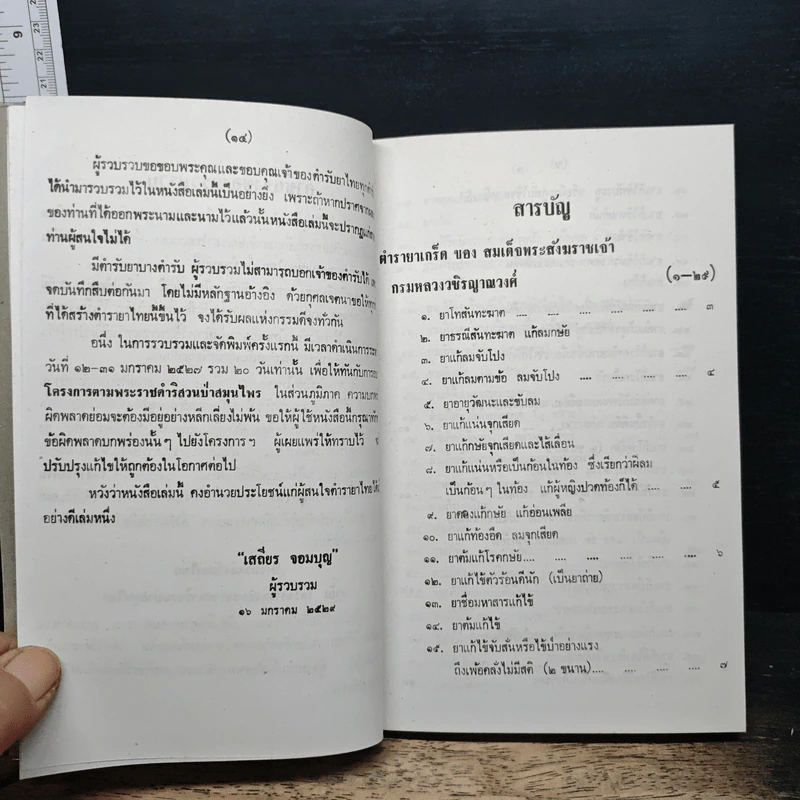 (๑๔)
ผู้รวบรวมขอขอบพระคุณและขอบคุณเจ้าของตำรับยาไทยทุกท่าน
ได้นำมารวบรวมไว้ในหนังสือเล่มนี้เป็นอย่างยิ่ง เพราะถ้าหากปราศจาก
ของท่านที่ได้ออกพระนามและนามไว้แล้วนั้นหนังสือเล่มนี้จะปรากฏแก่
ท่านผู้สนใจไม่ได้
มีตำรับยาบางตำรับ ผู้รวบรวมไม่สามารถบอกเจ้าของตำรับได้
จดบันทึกสืบต่อกันมา โดยไม่มีหลักฐานอ้างอิง ด้วยกุศลเจตนาขอให้
ที่ได้สร้างตำรายาไทยนี้ขึ้นไว้ จงได้รับผลแห่งกรรมดีจงทั่วกัน
อนึ่ง ในการรวบรวมและจัดพิมพ์ครั้งแรกนี้ มีเวลาดำเนินการระหว่าง
วันที่ ๑๒-๓๑ มกราคม ๒๕๒๗ รวม ๒๐ วันเท่านั้น เพื่อให้ทันกับการ
โครงการตามพระราชดำริสวนป่าสมุนไพร ในส่วนภูมิภาค ความบกพร่อง
ผิดพลาดย่อมจะต้องมีอยู่อย่างหลีกเลี่ยงไม่พ้น ขอให้ผู้ใช้หนังสือนี้กรุณา
ข้อผิดพลาดบกพร่องนั้นๆ ไปยังโครงการฯ ผู้เผยแพร่ให้ทราบไว้
ปรับปรุงแก้ไขให้ถูกต้องในโอกาสต่อไป
หวังว่าหนังสือเล่มนี้ คงอำนวยประโยชน์แก่ผู้สนใจตำรายาไทยได้
อย่างดีเล่มหนึ่ง
"เสถียร จอมบุญ"
ผู้รวบรวม
๑๖ มกราคม ๒๕๒๙
สารบัญ
ตำรายาเกร็ด ของ สมเด็จพระสังฆราชเจ้า
กรมหลวงวชิรญาณวงศ์ (๑–๒๕)
๑. ยาโทสันทะฆาต .... .... .... .... .... .... ๓
๒. ยาธรณีสันทะฆาต แก้ลมกษัย
๓. ยาแก้ลมจับโปง
๔. ยาแก้ลมตามข้อ ลมจับโปง .... .... .... .... ๔
๕. ยาอายุวัฒนะและขับลม
๖. ยาแก้แน่นจุกเสียด
๗. ยาแก้กษัยจุกเสียดและไส้เลื่อน
๘. ยาแก้แน่นหรือเป็นก้อนในท้อง ซึ่งเรียกว่าผีลม
เป็นก้อนๆ ในท้อง แก้ผู้หญิงปวดท้องก็ได้ .... .... ๕
๙. ยาดองแก้กษัย แก้อ่อนเพลีย
๑๐. ยาแก้ท้องอืด ลมจุกเสียด
๑๑. ยาต้มแก้โรคกษัย.... .... .... .... .... .... ๖
๑๒. ยาแก้ไข้ตัวร้อนดีนัก (เป็นยาถ่าย)
๑๓. ยาชื่อมหาสารแก้ไข้
๑๔. ยาต้มแก้ไข้
๑๕. ยาแก้ไข้จับสั่นหรือไข้ป่าอย่างแรง
ถึงเพ้อคลั่งไม่มีสติ (๒ ขนาน).... .... .... .... ๗
9
23
22
21